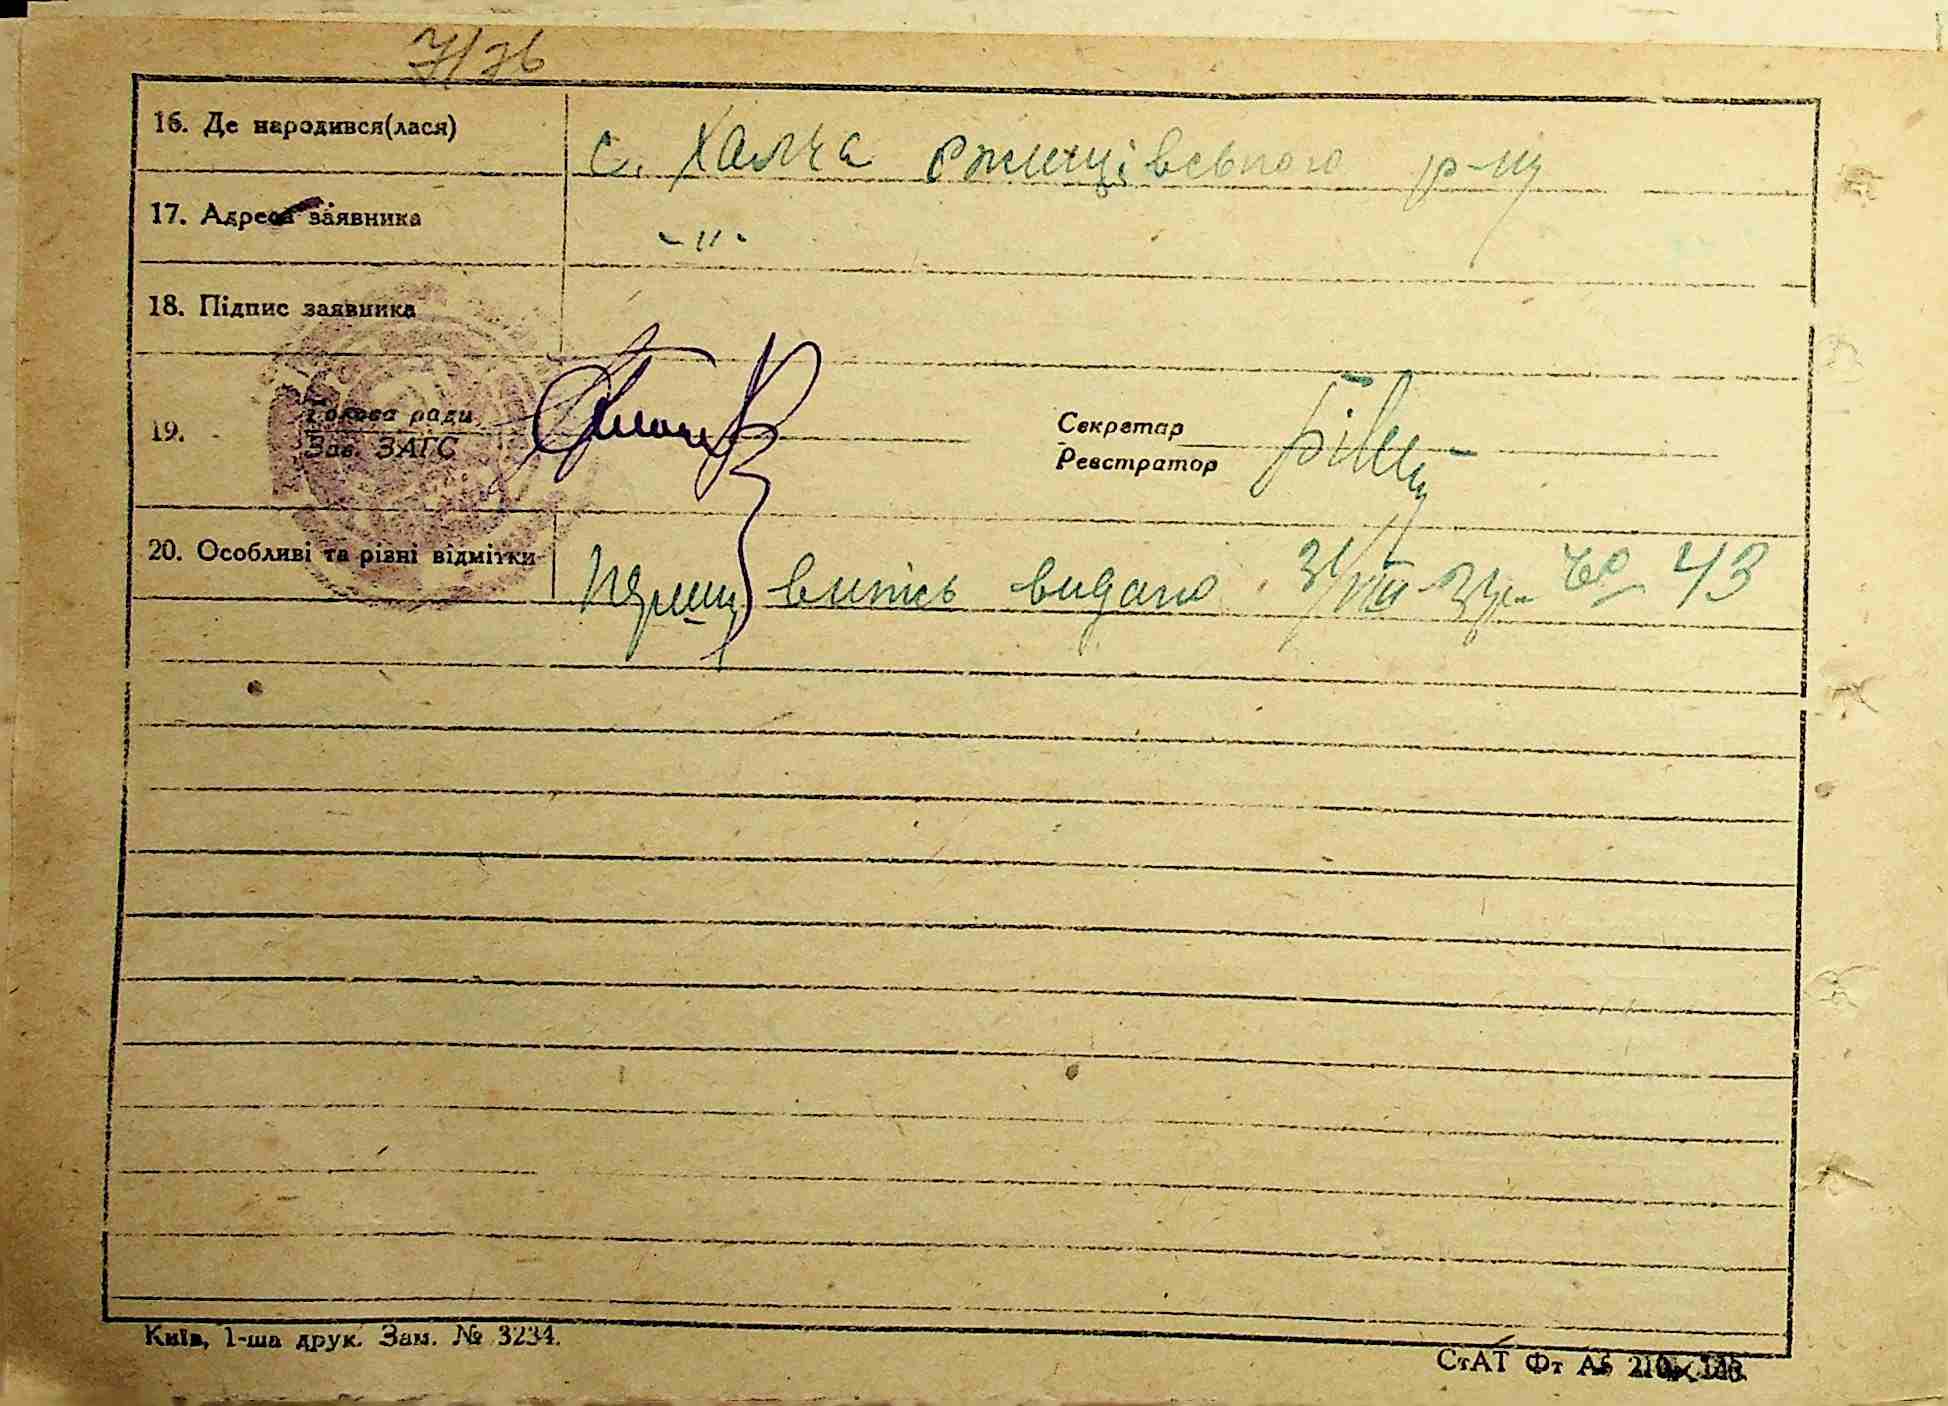 7/76
16. Де народився(лася) с. Халча Ржищівського р-ну
17. Адреса заявника -"-
18. Підпис заявника
19. Голова ради Секретар
Зав. ЗАГС Реєстратор
20. Особливі та різні відмітки першу випись видано 3/VIII 43
Київ, 1-ша друк. Зам. № 3234.
СтАТ Фт А5 210